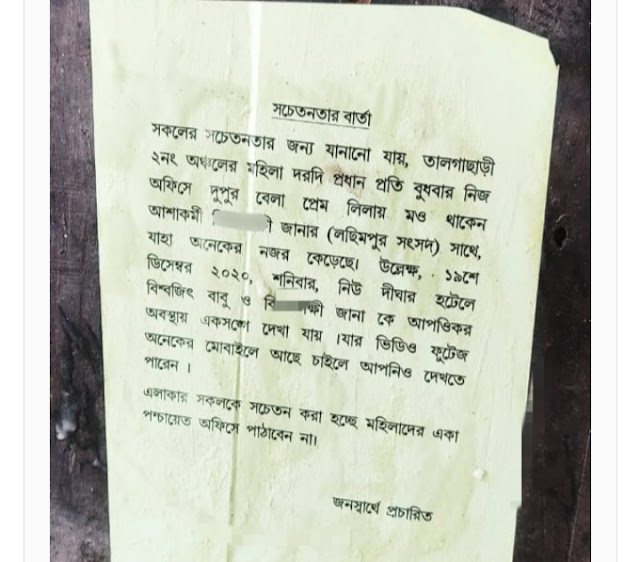 সচেতনতার বার্তা
সকলের সচেতনতার জন্য যানানো যায়, তালগাছাড়ী
২নং অঞ্চলের মহিলা দরদি প্রধান প্রতি বুধবার নিজ
অফিসে দুপুর বেলা প্রেম লিলায় মও থাকেন
আশাকমী ী জানার (লছিমপুর সংসদ) সাথে,
যাহা অনেকের নজর কেড়েছে। উল্লেক্ষ, ১৯শে
ডিসেম্বর ২০২০, শনিবার, নিউ দীঘার হটেলে
বিশ্বজিৎ বাবু ও বি ক্ষী জানা কে আপওিকর
অবস্থায় একসঙ্গে দেখা যায় ।যার ভিডিও ফুটেজ
অনেকের মোবাইলে আছে চাইলে আপনিও দেখতে
পারেন ।
এলাকার সকলকে সচেতন করা হচ্ছে মহিলাদের একা
পঞ্চায়েত অফিসে পাঠাবেন না।
জনস্বার্থে প্রচারিত